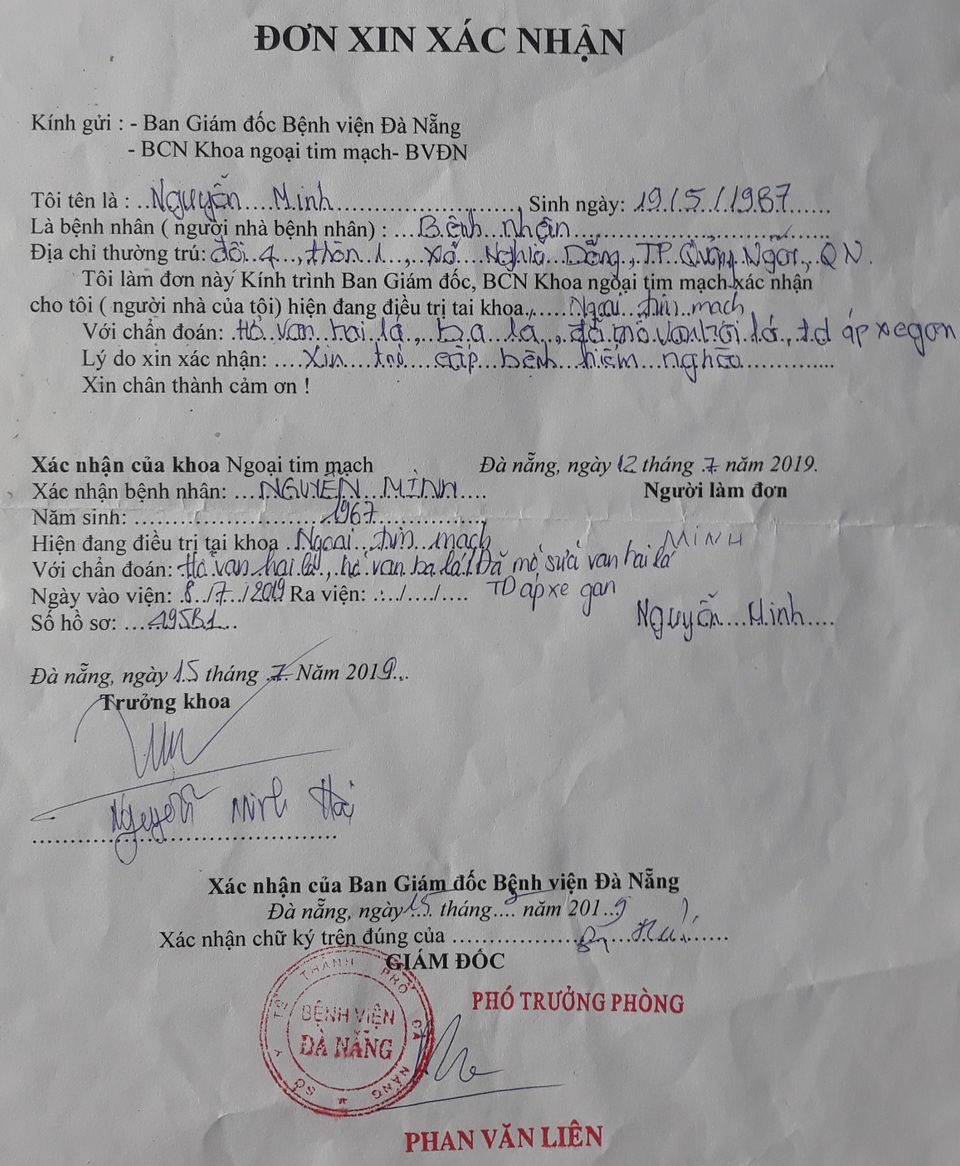 ĐƠN XIN XÁC NHẬN
Kính gửi : - Ban Giám đốc Bệnh viện Đà Nẵng
- BCN Khoa ngoại tim mạch- BVĐN
Tôi tên là : ..Nguyễn....Minh......................, Sinh ngày: 19./.5./.1987......
Là bệnh nhân ( người nhà bệnh nhân) : ...Bệnh..nhân............................
Địa chỉ thường trú: đội..4..., thôn..1..., xã..Nghĩa..Dõng., TP..Quảng..Ngãi., QN.
Tôi làm đơn này Kính trình Ban Giám đốc, BCN Khoa ngoại tim mạch xác nhận
cho tôi ( người nhà của tội) hiện đang điều trị tai khoa.......Ngoại..tim..mạch
Với chẩn đoán: Hở..van..hai..lá.., ba..lá..., đã mổ van hai lá.., td áp xe gan
Lý do xin xác nhận: ....Xin..trợ..cấp..bệnh..hiểm..nghèo..............
Xin chân thành cảm ơn !
Xác nhận của khoa Ngoại tim mạch
Đà nẵng, ngày 12 tháng .7 năm 2019.
Xác nhận bệnh nhân: ...NGUYỄN...MINH....
Người làm đơn
Năm sinh: ........................1967..............
Hiện đang điều trị tại khoa ..Ngoại..tim..mạch
MINH
Với chẩn đoán: Hở van hai lá, hở van ba lá / Đã mổ sửa van hai lá
Ngày vào viện: 8../7../2019 Ra viện: .../..../....
TD áp xe gan
Số hồ sơ: ...495B1..
Nguyễn...Minh....
Đà nẵng, ngày 15 tháng .7. Năm 2019...
Trưởng khoa
Nguyễn Minh Hải
Xác nhận của Ban Giám đốc Bệnh viện Đà Nẵng
Đà nẵng, ngày 15. tháng.... năm 201..9
Xác nhận chữ ký trên đúng của
GIÁM ĐỐC
SỞ Y TẾ THÀNH PHỐ ĐÀ NẴNG
BỆNH VIỆN
ĐÀ NẴNG
PHÓ TRƯỞNG PHÒNG
PHAN VĂN LIÊN